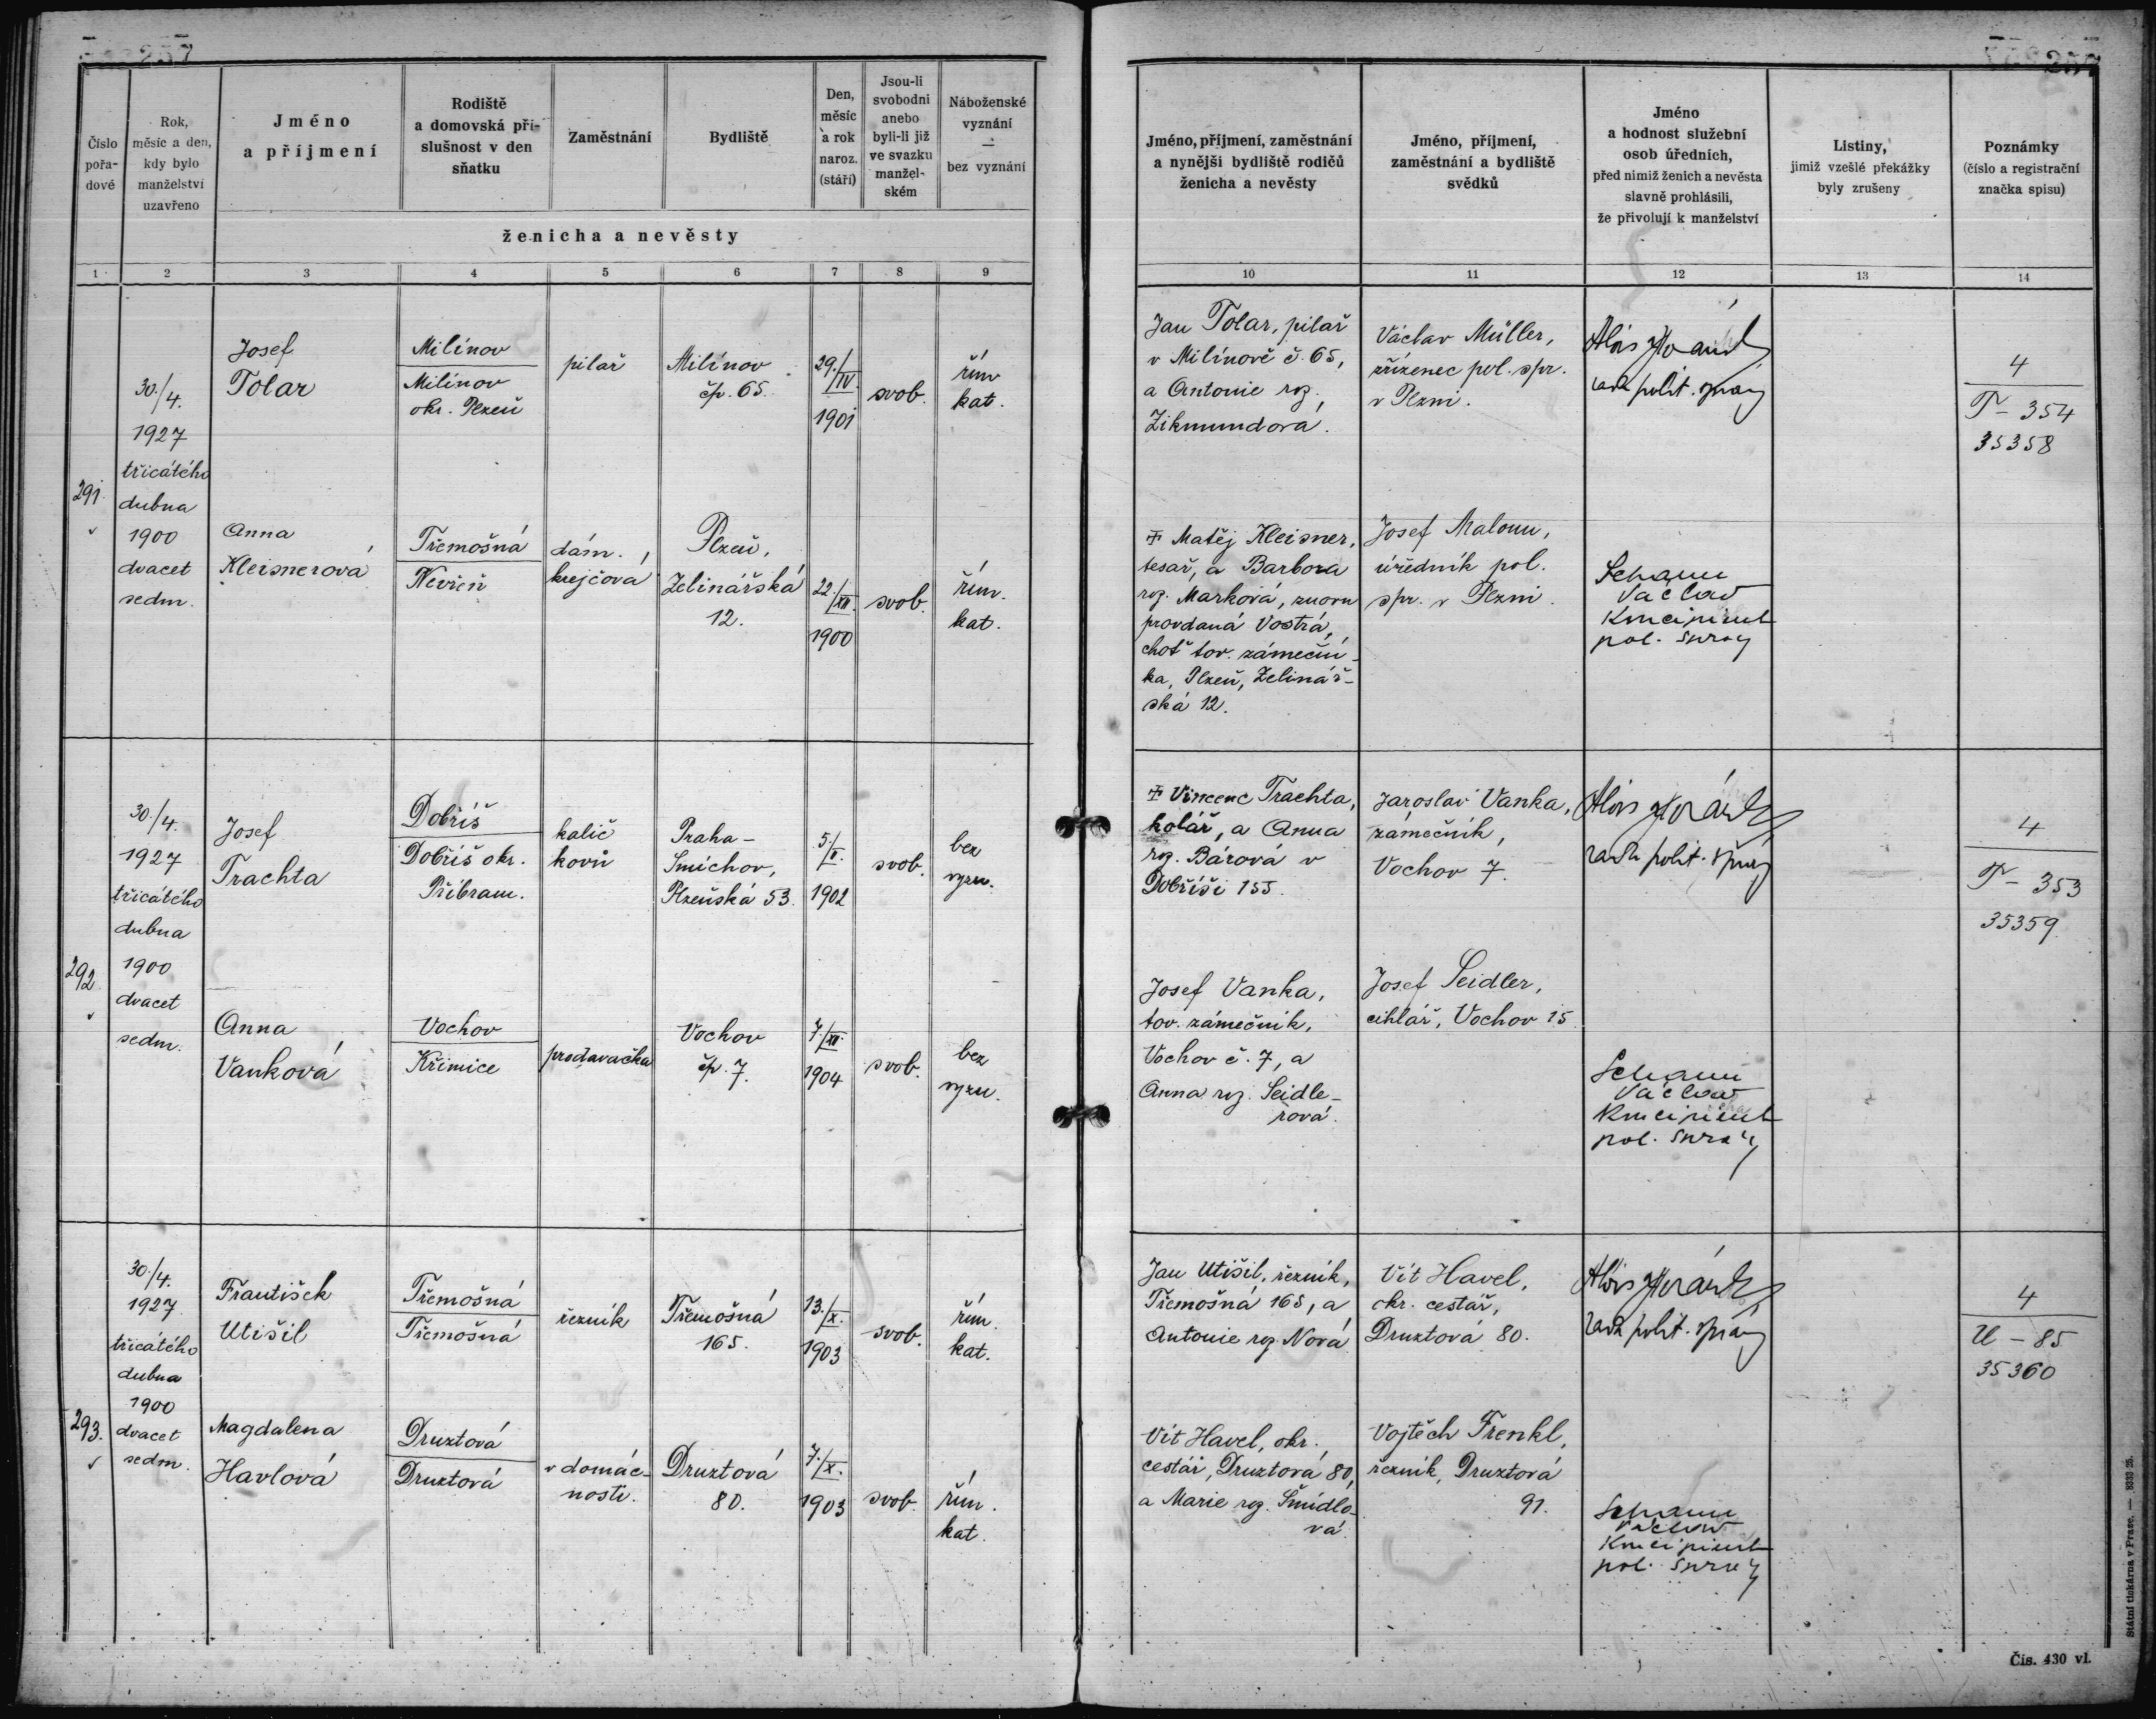 257
257
Číslo pořa-dové
Rok, měsíc a den, kdy bylo manželství uzavřeno
Jméno a příjmení
Rodiště a domovská pří-slušnost v den sňatku
Zaměstnání
Bydliště
Den, měsíc a rok naroz. (stáří)
Jsou-li svobodni anebo byli-li již ve svazku manžel-ském
Náboženské vyznání — bez vyznání
ženicha a nevěsty
Jméno, příjmení, zaměstnání a nynější bydliště rodičů ženicha a nevěsty
Jméno, příjmení, zaměstnání a bydliště svědků
Jméno a hodnost služební osob úředních, před nimiž ženich a nevěsta slavně prohlásili, že přivolují k manželství
Listiny, jimiž vzešlé překážky byly zrušeny
Poznámky (číslo a registrační značka spisu)
1 2 3 4 5 6 7 8 9 10 11 12 13 14
291
30./4.
1927
třicátého
dubna
1900
dvacet
sedm.
Josef
Tolar
Milínov
Milínov
okr. Plzeň
pilař
Milínov
čp. 65.
29./IV.
1901
svob.
řím
kat.
Jan Tolar, pilař
v Milínově č. 65,
a Antonie roz.
Zikmundová.
Václav Müller,
zřízenec pol. spr.
v Plzni.
Alois
rada polit. správy
4
T - 354
35358
Anna
Kleisnerová
Třemošná
Nevřeň
dám.
krejčová
Plzeň,
Zelinářská
12.
22./XII.
1900
svob.
řím.
kat.
Matěj Kleisner,
tesař, a Barbora
roz. Marková, znovu
provdaná Vostrá,
choť tov. zámeční-
ka, Plzeň, Zelinář-
ská 12.
Josef Maloun,
úředník pol.
spr. v Plzni.
Schann
Václav
koncipient
pol. správy
292
30./4.
1927
třicátého
dubna
1900
dvacet
sedm.
Josef
Trachta
Dobříš
Dobříš okr.
Příbram.
kalič
kovů
Praha-
Smíchov,
Plzeňská 53.
5./
1902
svob.
bez
vyzn.
Vincenc Trachta,
kolář, a Anna
roz. Bárová v
Dobříši 155.
Jaroslav Vanka,
zámečník,
Vochov 7.
Alois
rada polit. správy
4
T - 353
35359
Anna
Vanková
Vochov
Křimice
prodavačka
Vochov
čp. 7.
7./XII.
1904
svob.
bez
vyzn.
Josef Vanka,
tov. zámečník,
Vochov č. 7, a
Anna roz. Seidle-
rová.
Josef Seidler,
cihlář, Vochov 15
Schann
Václav
koncipient
pol. správy
293.
30./4.
1927
třicátého
dubna
1900
dvacet
sedm.
František
Utišil
Třemošná
Třemošná
řezník
Třemošná
165.
13./X.
1903
svob.
řím.
kat.
Jan Utišil, řezník,
Třemošná 165, a
Antonie roz. Nová
Vít Havel,
okr. cestář,
Druztová 80.
Alois
rada polit. správy
4
U - 85
35360
Magdalena
Havlová
Druztová
Druztová
v domác-
nosti.
Druztová
80.
7./X.
1903
svob.
řím.
kat.
Vít Havel, okr.
cestář, Druztová 80,
a Marie roz. Šmídlo-
vá.
Vojtěch Frenkl,
řezník, Druztová
91.
Schann
Václav
koncipient
pol. správy
Státní tiskárna v Praze. — 8333 25.
Čís. 430 vl.